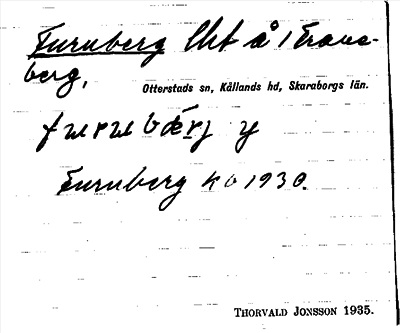 Furuberg lht å 1 Trane-
berg,
Otterstads sn, Kållands hd, Skaraborgs län.
Furuberg kb 1930.
THORVALD JONSSON 1935.